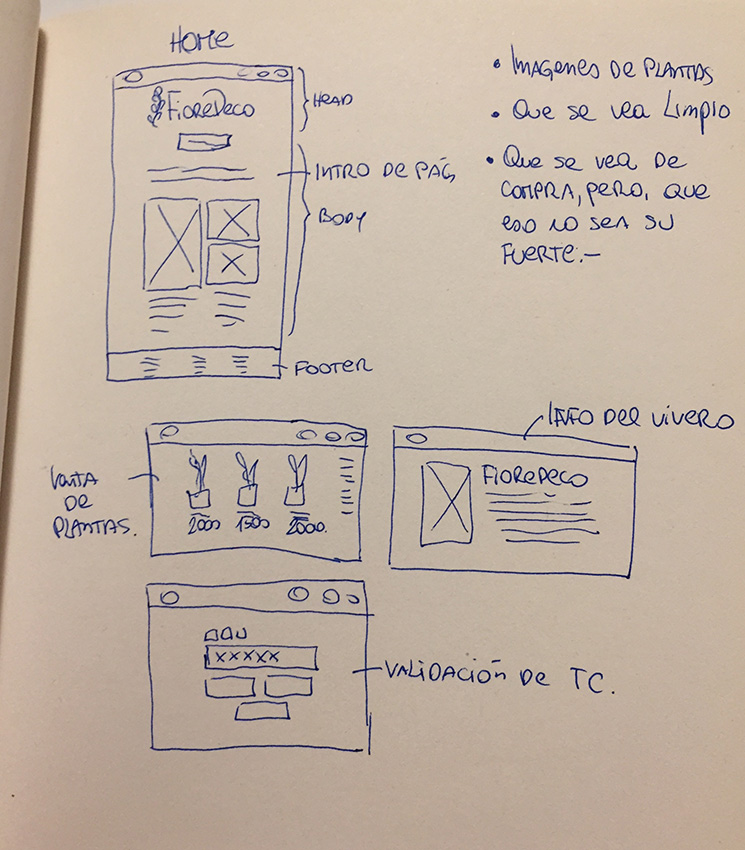 HOME
FIOREDECO
HEAD
INTRO DE PÁG.
BODY
FOOTER
• IMAGENES DE PLANTAS
• QUE SE VEA LIMPIO
• QUE SE VEA DE
COMPRA, PERO, QUE
ESO NO SEA SU
FUERTE.-
VENTA
DE
PLANTAS.
2000 1500 2000.
INFO DEL VIVERO
FIOREDECO
XXXXX
VALIDACIÓN DE TC.